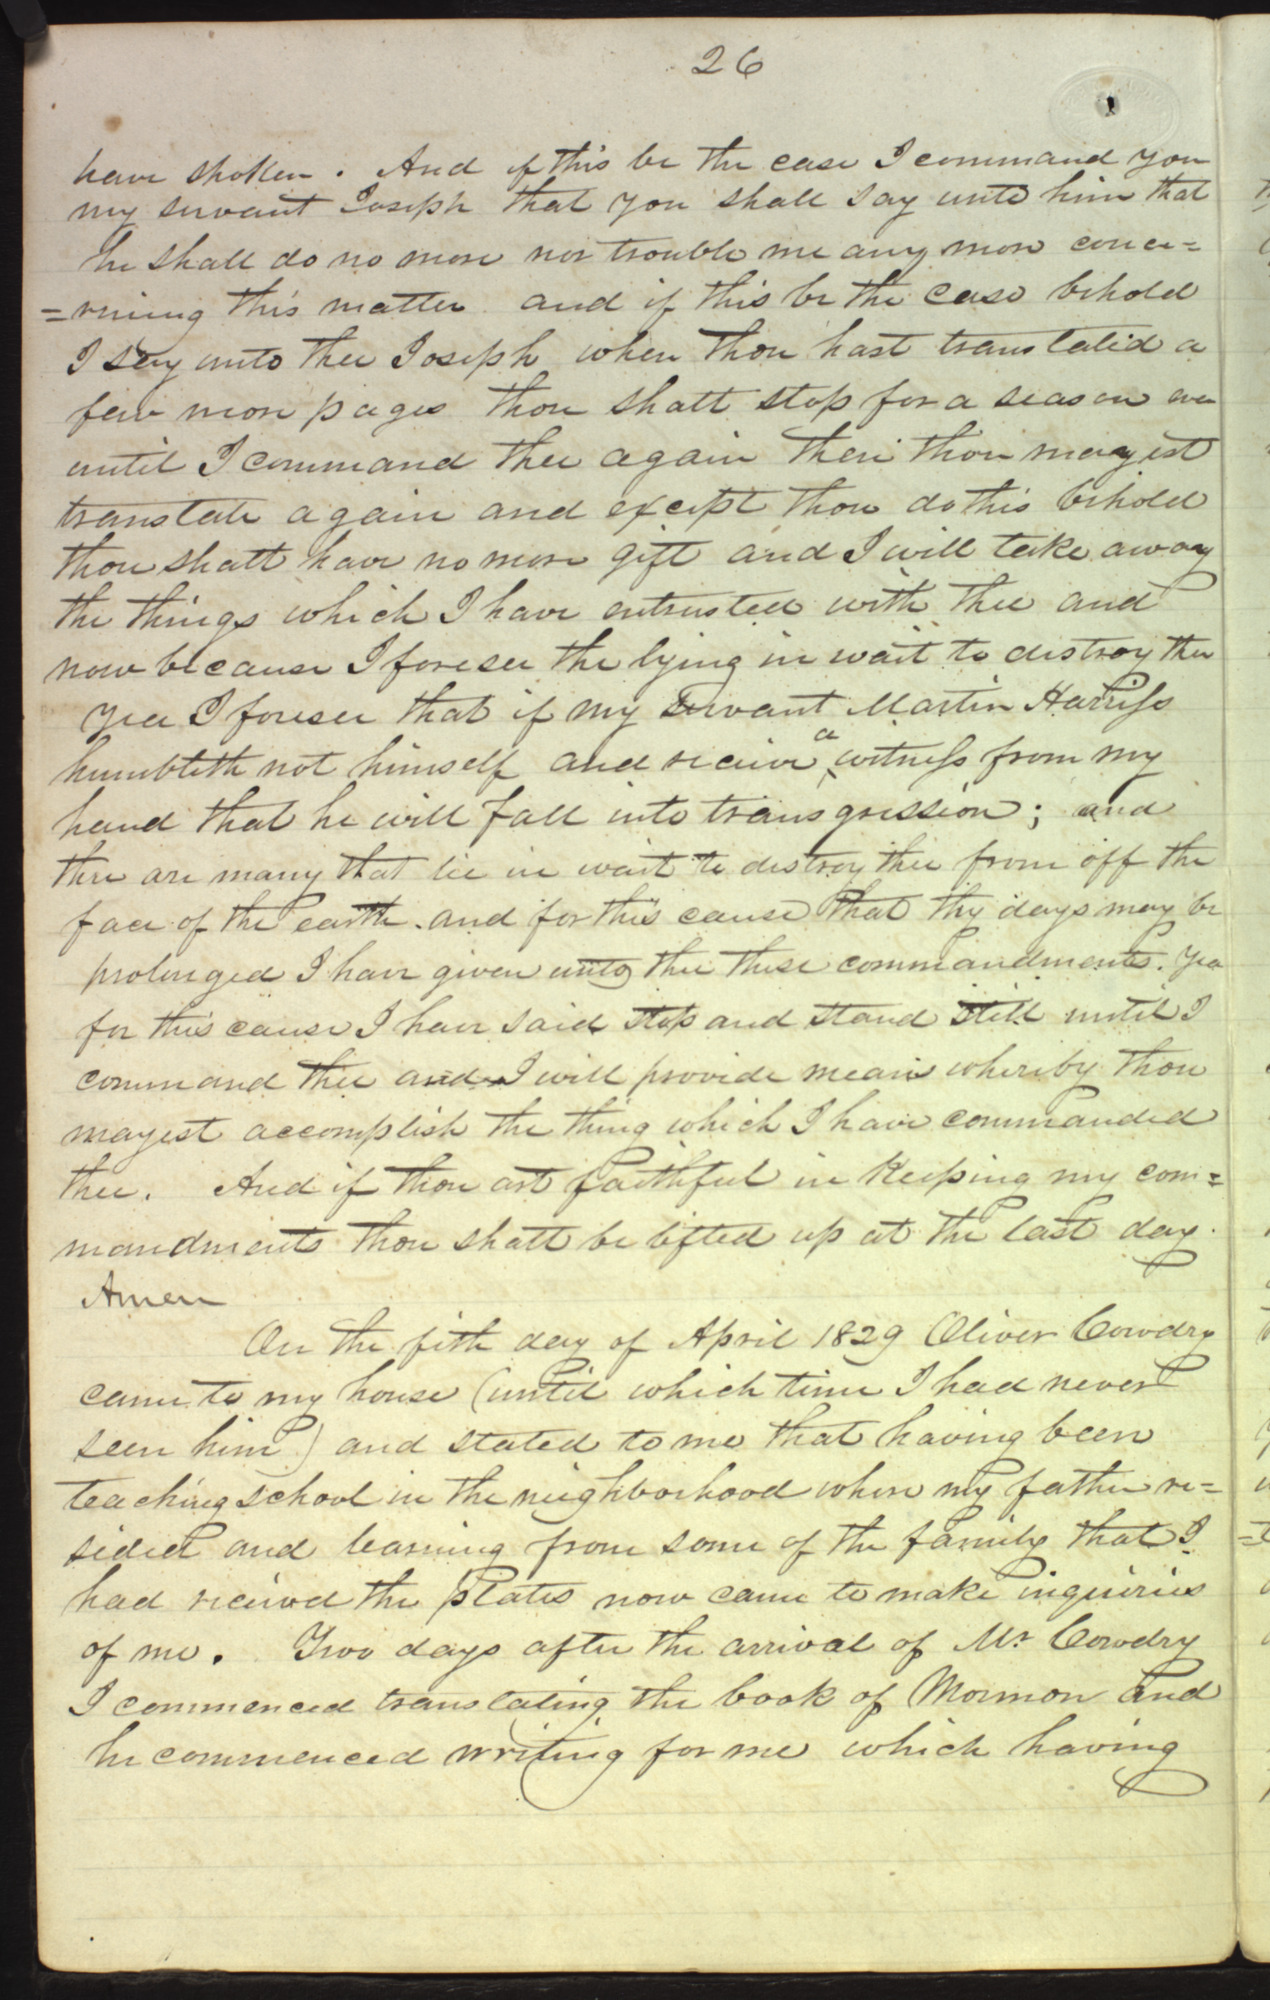 26
have spoken. And if this be the case I command you
my servant Joseph that you shall say unto him that
he shall do no more nor trouble me any more conce=
=rning this matter and if this be the case behold
I say unto thee Joseph when thou hast translated a
few more pages thou shalt stop for a season even
until I command thee again then thou mayest
translate again and except thou do this behold
thou shalt have no more gift and I will take away
the things which I have entrusted with thee and
now because I foresee the lying in wait to destroy thee
yea I foresee that if my servant Martin Harriss
humbleth not himself and receive a witness from my
hand that he will fall into transgression; and
there are many that lie in wait to destroy thee from off the
face of the earth. and for this cause that thy days may be
prolonged I have given unto thee these commandments. Yea
for this cause I have said stop and stand still until I
command thee and I will provide means whereby thou
mayest accomplish the thing which I have commanded
thee. And if thou art faithful in keeping my com=
mandments thou shalt be lifted up at the last day.
Amen
On the fifth day of April 1829 Oliver Cowdry
came to my house (until which time I had never
seen him) and stated to me that having been
teaching school in the neighborhood where my father re=
sided and learning from some of the family that I
had received the plates now came to make inquiries
of me. Two days after the arrival of Mr Cowdry
I commenced translating the book of Mormon and
he commenced writing for me which having